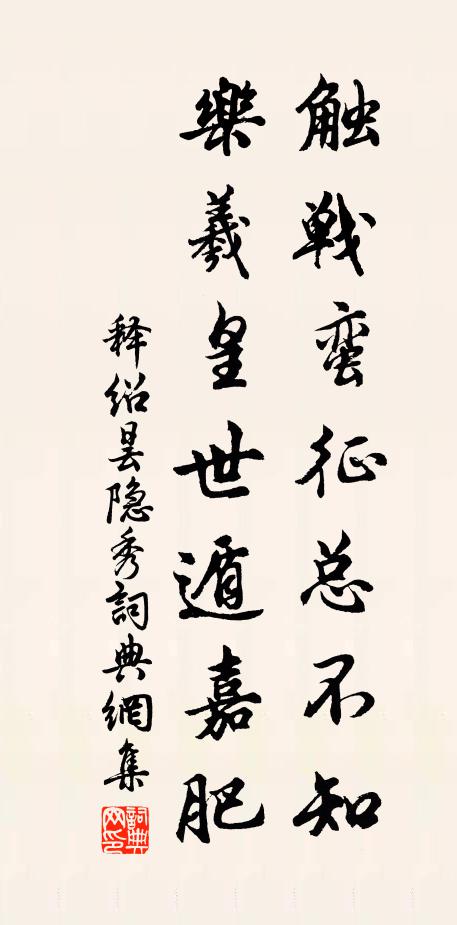 触战蛮征总不知
樂羲皇世遁嘉肥
释绍昙隐秀詞典網集
詞典